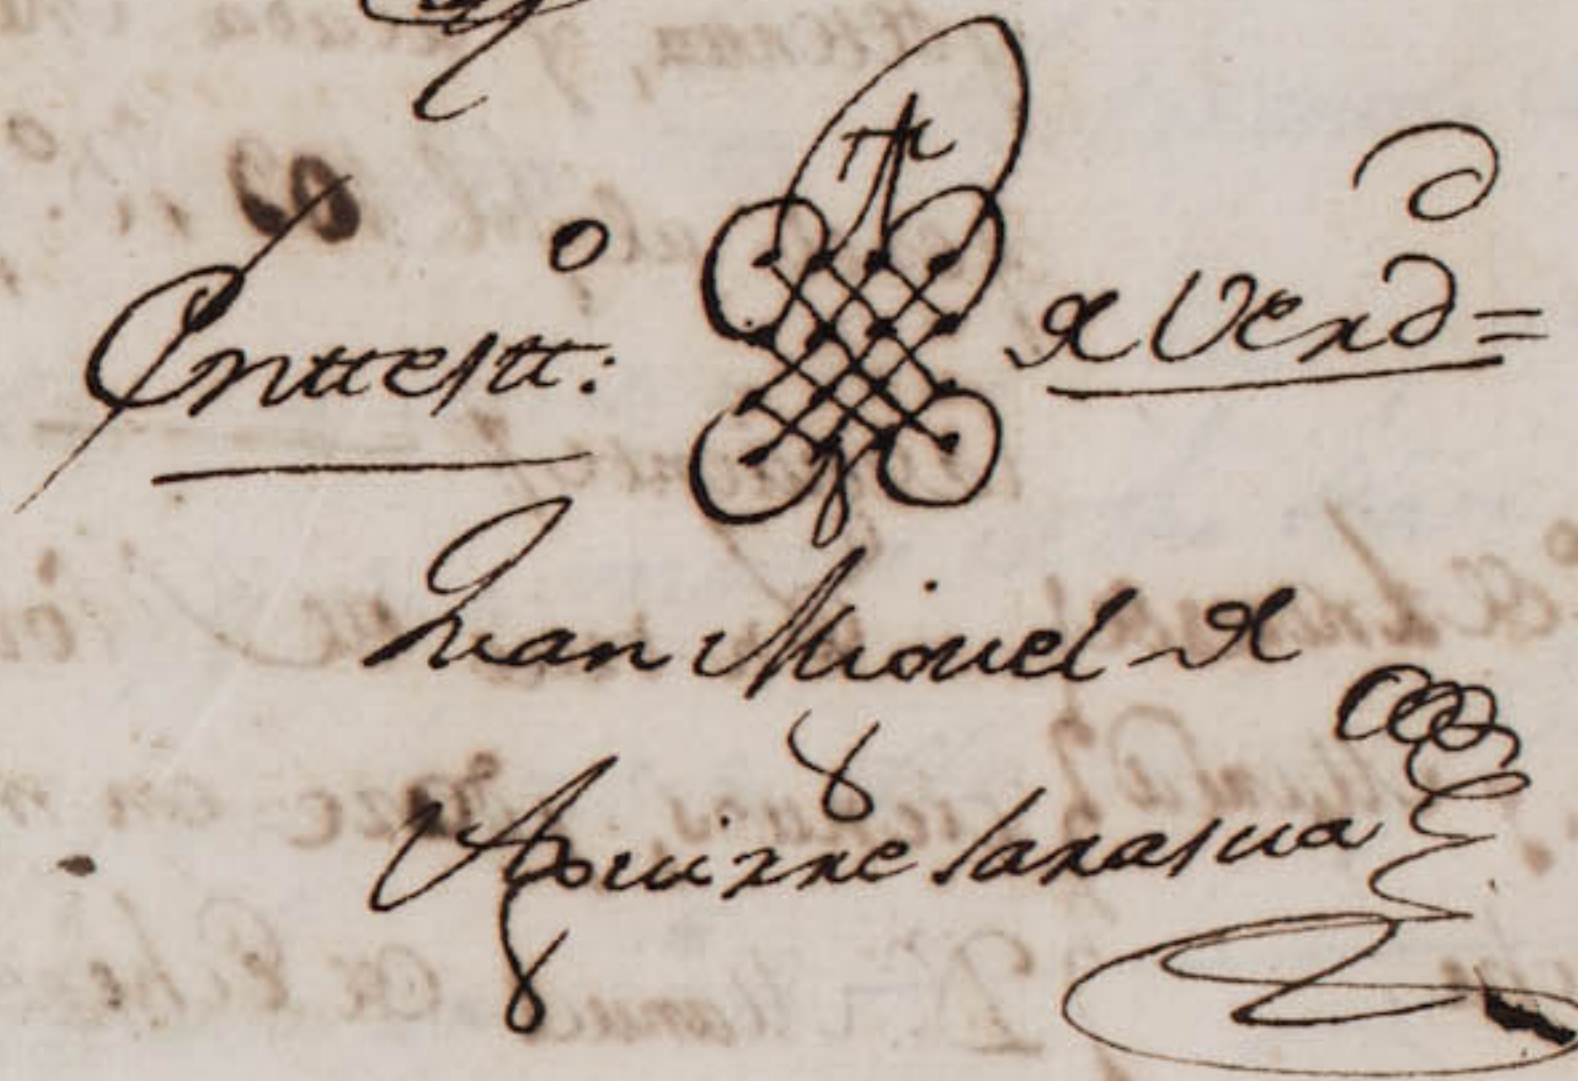 En ttestt:º de Verd=
Juan Miguel de
Aguirre sarasua